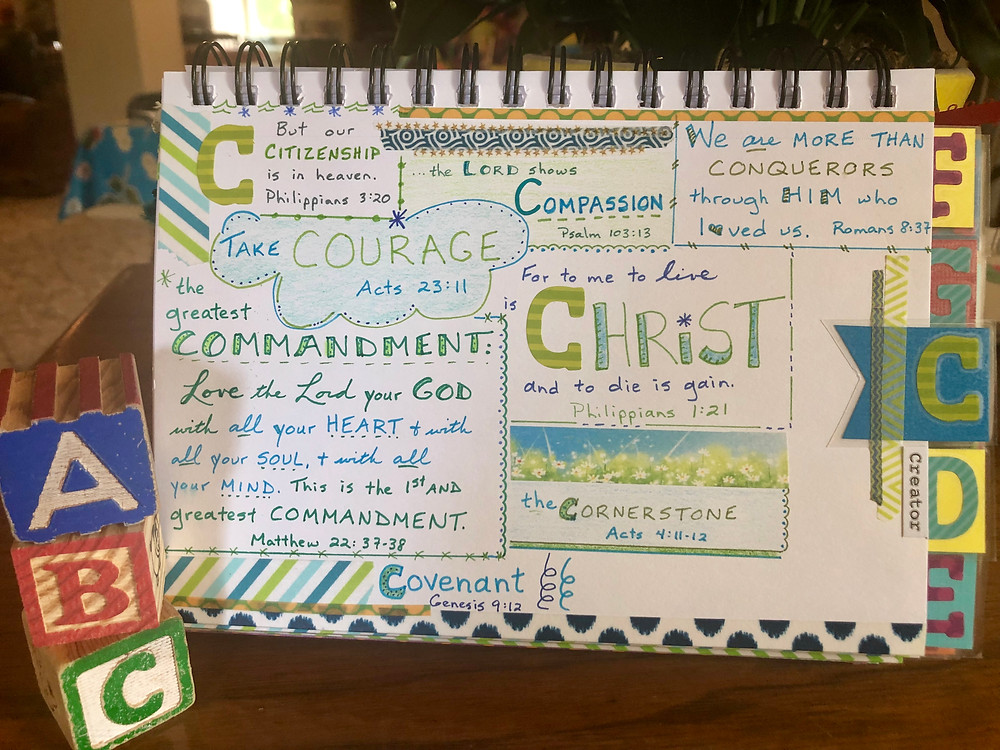 C
But our
CITIZENSHIP
is in heaven.
Philippians 3:20
...the LORD shows
COMPASSION
Psalm 103:13
We are MORE THAN
CONQUERORS
through HIM who
loved us. Romans 8:37
TAKE COURAGE
Acts 23:11
*the
greatest
COMMANDMENT:
Love the Lord your GOD
with all your HEART + with
all your SOUL, + with all
your MIND. This is the 1st AND
greatest COMMANDMENT.
Matthew 22:37-38
For to me to live
is CHRIST
and to die is gain.
Philippians 1:21
the CORNERSTONE
Acts 4:11-12
Covenant
Genesis 9:12
C
Creator
D
A
B
C